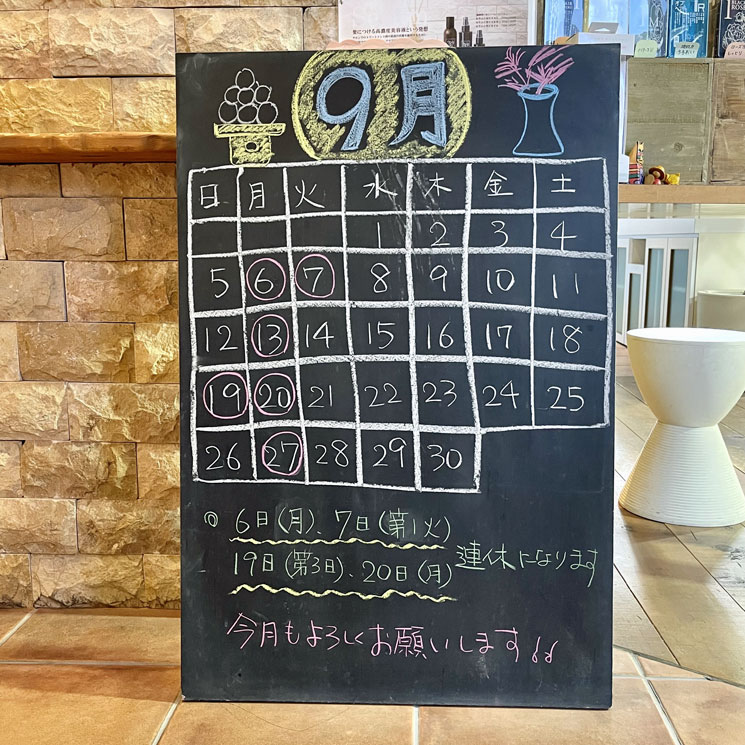 髪につける高濃度美容液という発想
9月
日 月 火 水 木 金 土
1 2 3 4
5 6 7 8 9 10 11
12 13 14 15 16 17 18
19 20 21 22 23 24 25
26 27 28 29 30
◎ 6日(月)、7日(第1火)
19日(第3日)、20日(月) 連休になります
今月もよろしくお願いします!!